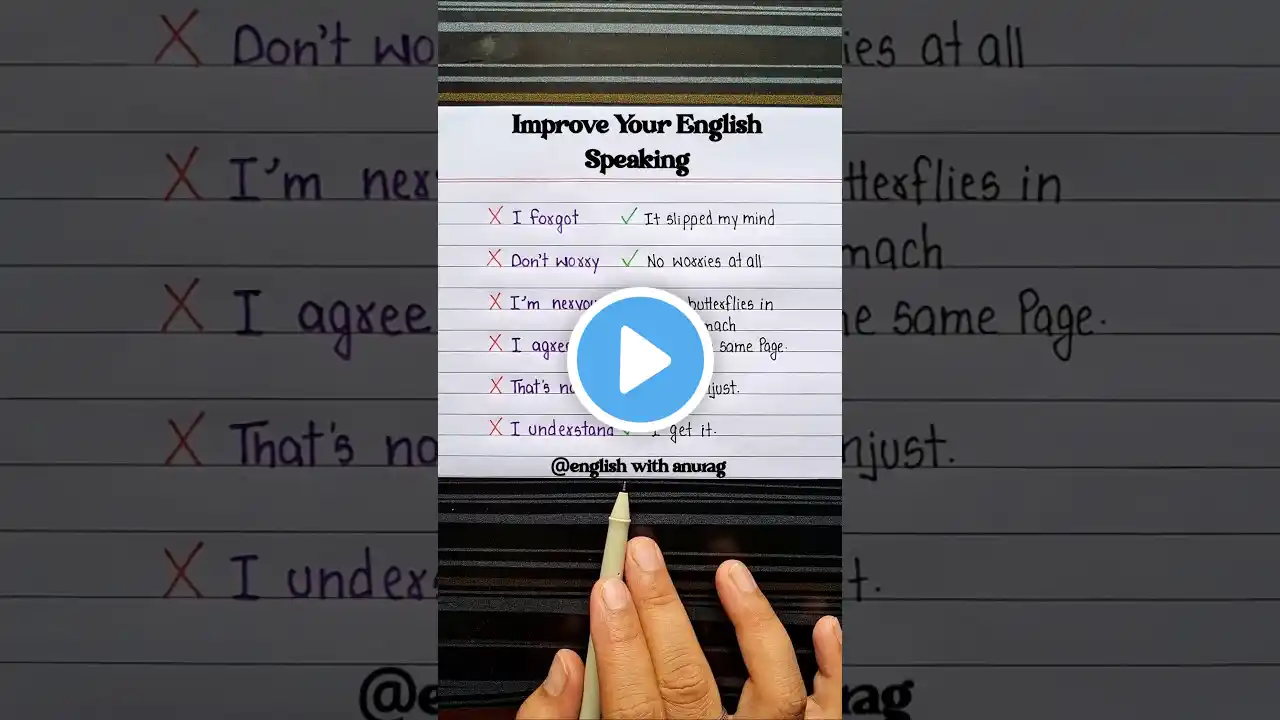 Improve Your English
Speaking
X I forgot ✓ It slipped my mind
X Don't worry ✓ No worries at all
X I'm butterflies in
X I agree same Page.
X That's
X I understand ✓ I get it.
@english with anurag